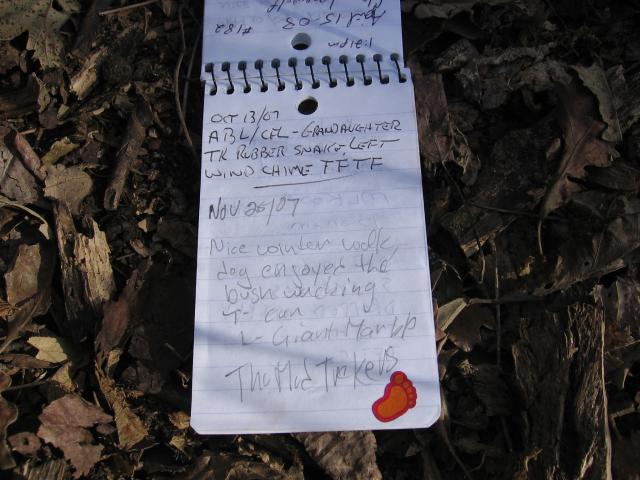 #182
Apr 15-08
1:21pm
OCT 13/07
ABL/CFL - GRANDAUGHTER
TK RUBBER SNAKE LEFT
WIND CHIME TFTF
NOV 25/07
Nice winter walk,
dog enjoyed the
bush wacking
T- can
L- Giant Marble
The Mad Trekers